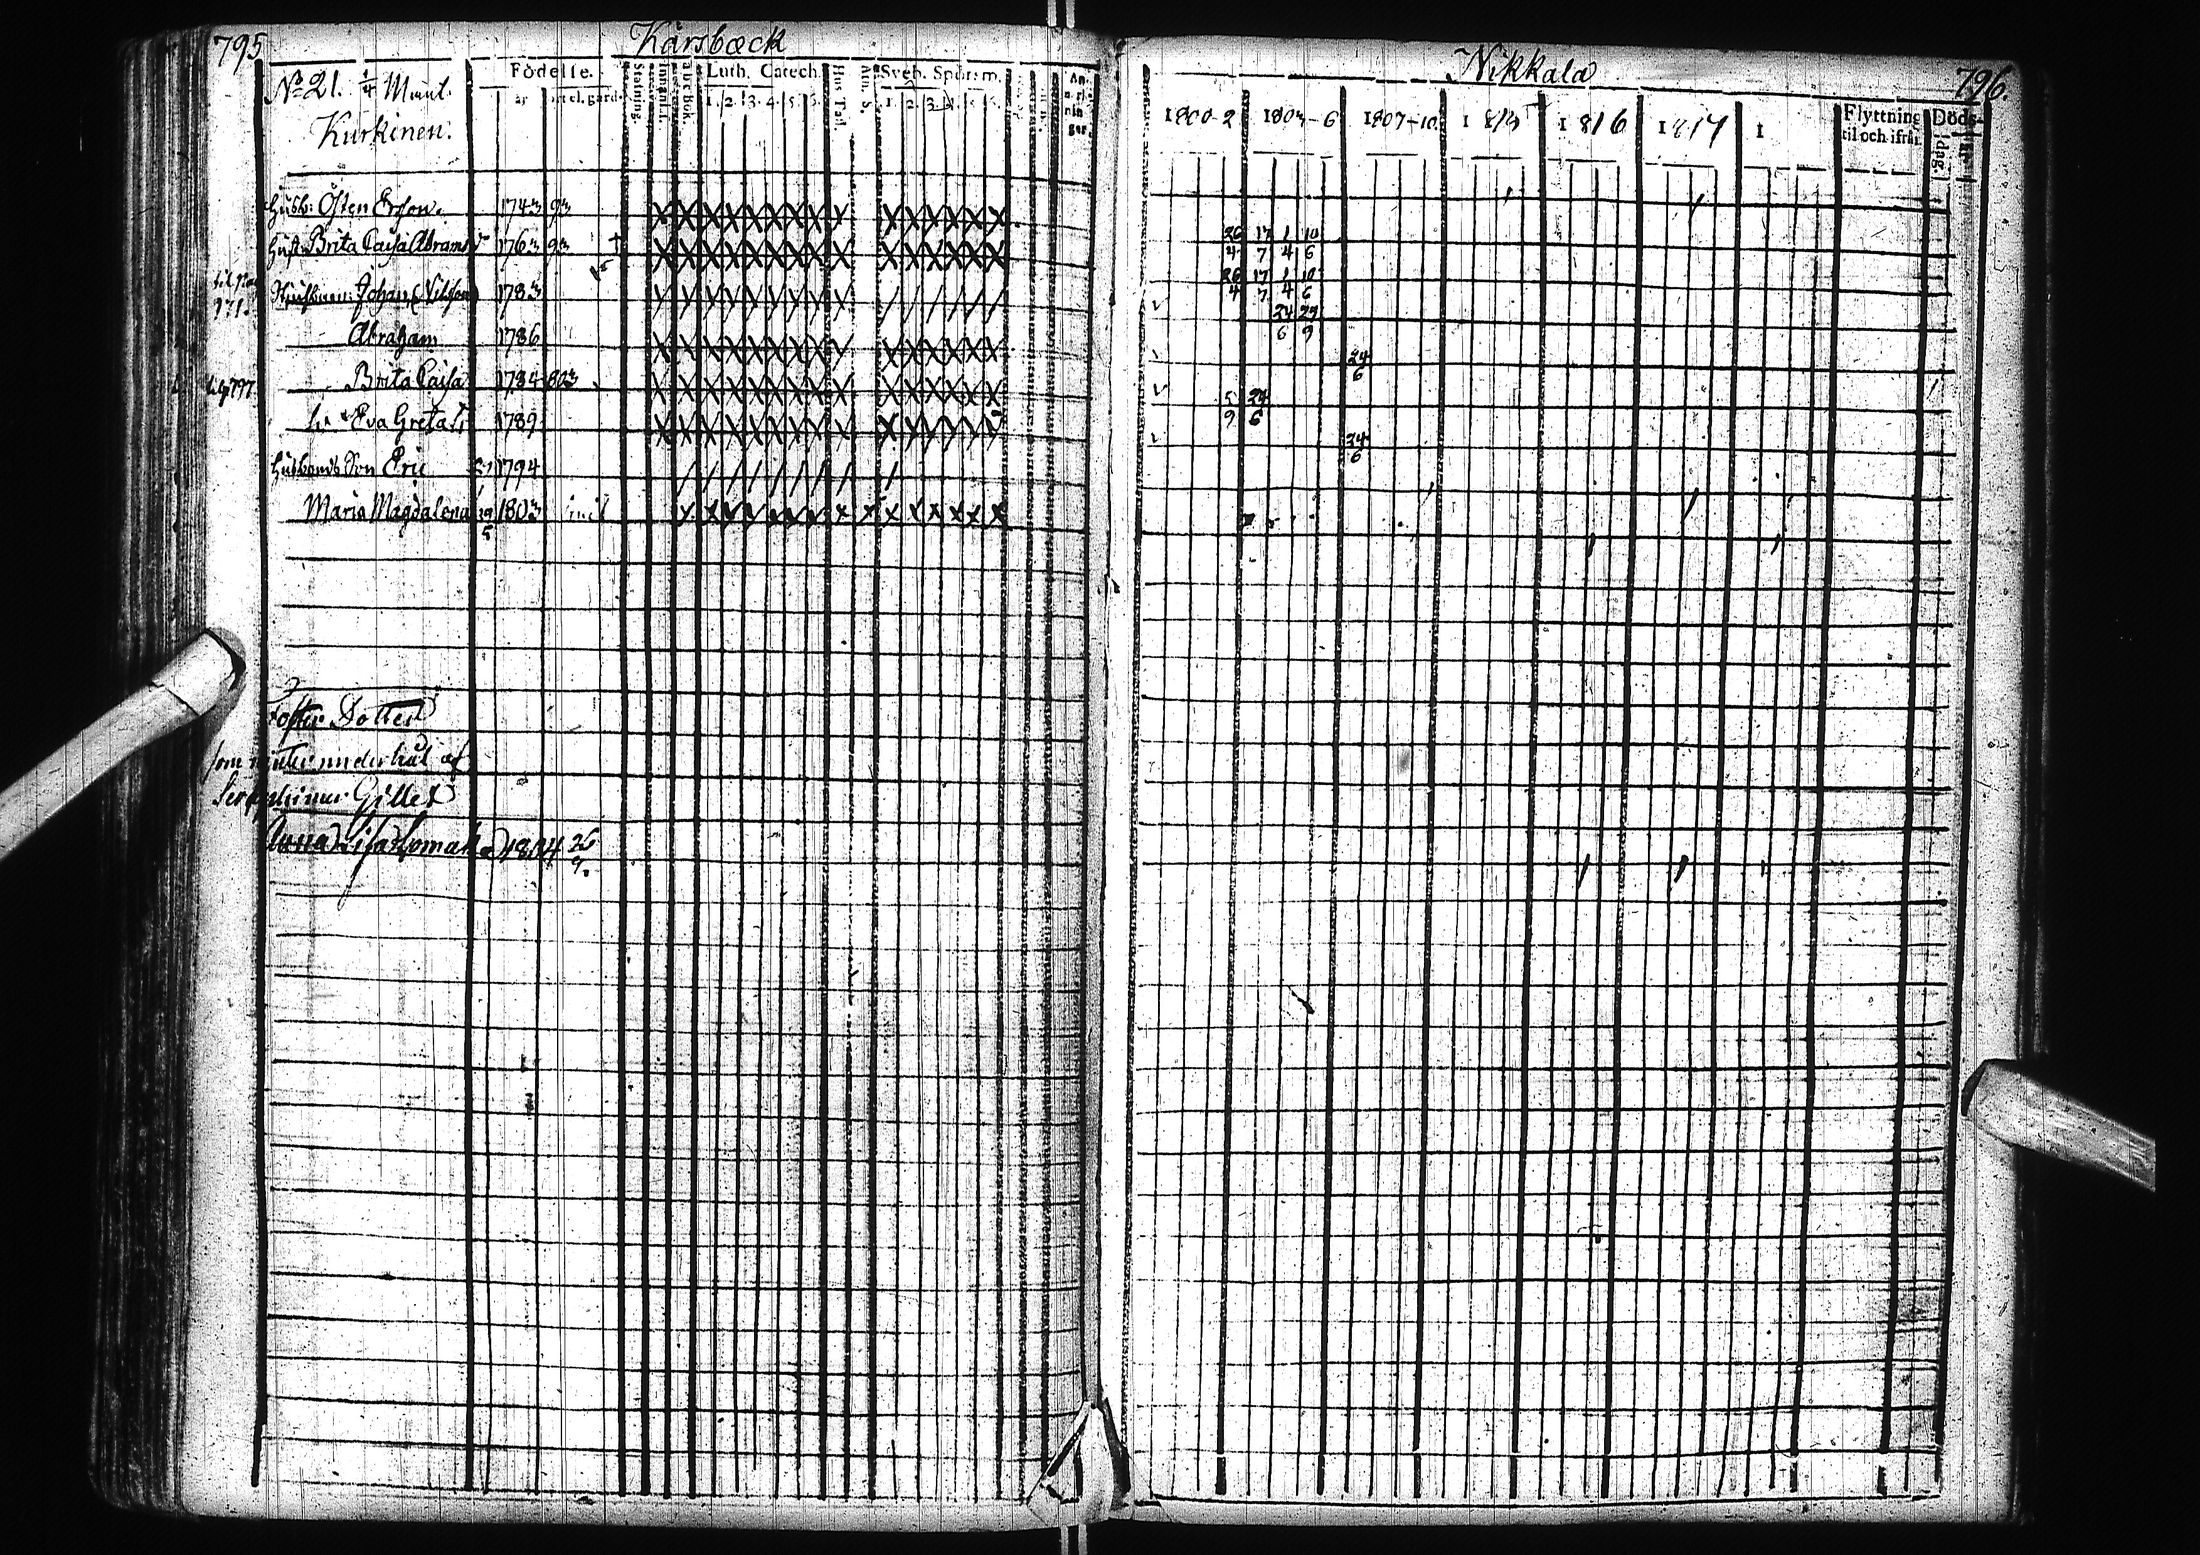 795
Karsbæck
No 21. 1/4 Mant.
Kurkinen.
Födelse.
år
Stafning.
Luth. Catech.
1. 2. 3. 4. 5.
Hus Tafl.
Sveb. Spörsm.
1. 2. 3. 4. 5.
Husb: Östen Ersson 1743 93
Hust: Brita Caisa Abrams 1763 93 †
971. Johan Nilsson 1783
Abraham 1786
797. Brita Caisa 1784 803
Eva Greta 1789
Husbonds Son Eric 1794
Maria Magdalena 19/5 1803
Foster Dotter
som niuter underhåll af
Seraphimer Gillet
Anna Lisa 1804 26/9.
Nikkala
796.
1800-2 1803-6 1807-10 1815 1816 1817 1
Flyttning
til och ifrån
Döds-
dag.
26 17 1 10
4 7 4 6
26 17 1 10
4 7 4 6
24 29
6 9
24
6
5 24
9 6
24
6